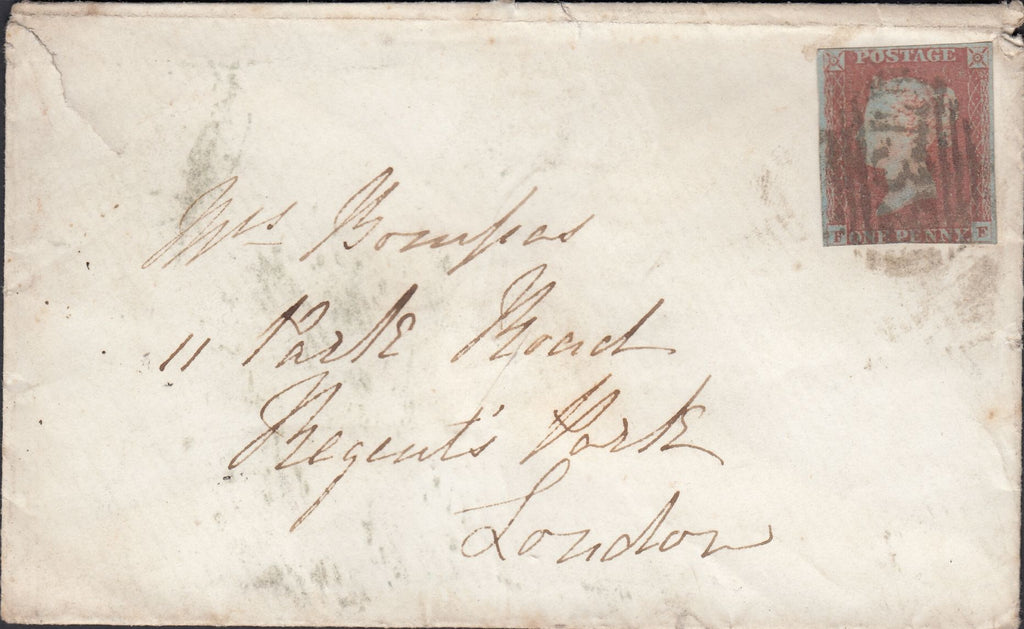 POSTAGE
ONE PENNY.
F F
Mrs Bompas
11 Park Road
Regent's Park
London